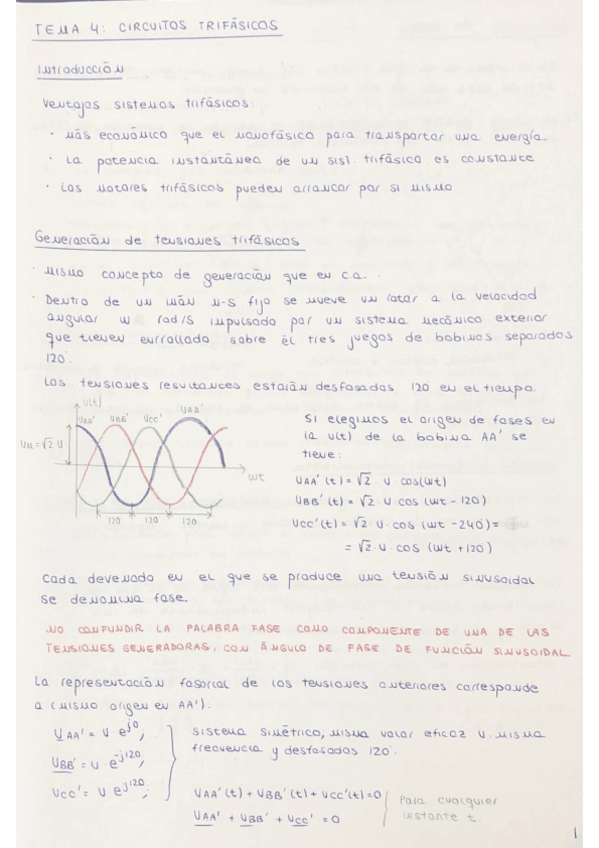 TEMA 4: CIRCUITOS TRIFÁSICOS
Introducción
Ventajas sistemas trifásicos:
· Más económico que el monofásico para transportar una energía
· La potencia instantánea de un sist. trifásico es constante
· Los motores trifásicos pueden arrancar por si mismo
Generación de tensiones trifásicos
· Mismo concepto de generación que en c.a.
· Dentro de un imán N-S fijo se mueve un rotor a la velocidad
angular w rad/s impulsado por un sistema mecánico exterior
que tienen enrrollado sobre él tres juegos de bobinas separados
120°.
Las tensiones resultantes estarán desfasadas 120° en el tiempo.
u(t)
UAA' UBB' UCC' UAA'
UM=√2 U
wt
120 120 120
Si elegimos el origen de fases en
la u(t) de la bobina AA' se
tiene:
UAA'(t) = √2 · U · cos(wt)
UBB'(t) = √2 · U cos (wt - 120)
UCC'(t) = √2 · U · cos (wt - 240) =
= √2 · U cos (wt + 120)
Cada devanado en el que se produce una tensión sinusoidal
se denomina fase.
NO CONFUNDIR LA PALABRA FASE COMO COMPONENTE DE UNA DE LAS
TENSIONES GENERADORAS, CON ÁNGULO DE FASE DE FUNCIÓN SINUSOIDAL
La representación fasorial de las tensiones anteriores corresponde
a (mismo origen en AA'):
UAA' = U · e^j0;
UBB' = U · e^-j120;
UCC' = U e^j120;
Sistema simétrico, misma valor eficaz U, misma
frecuencia y desfasados 120°.
UAA'(t) + UBB'(t) + UCC'(t) = 0
UAA' + UBB' + UCC' = 0
Para cualquier
instante t.
1